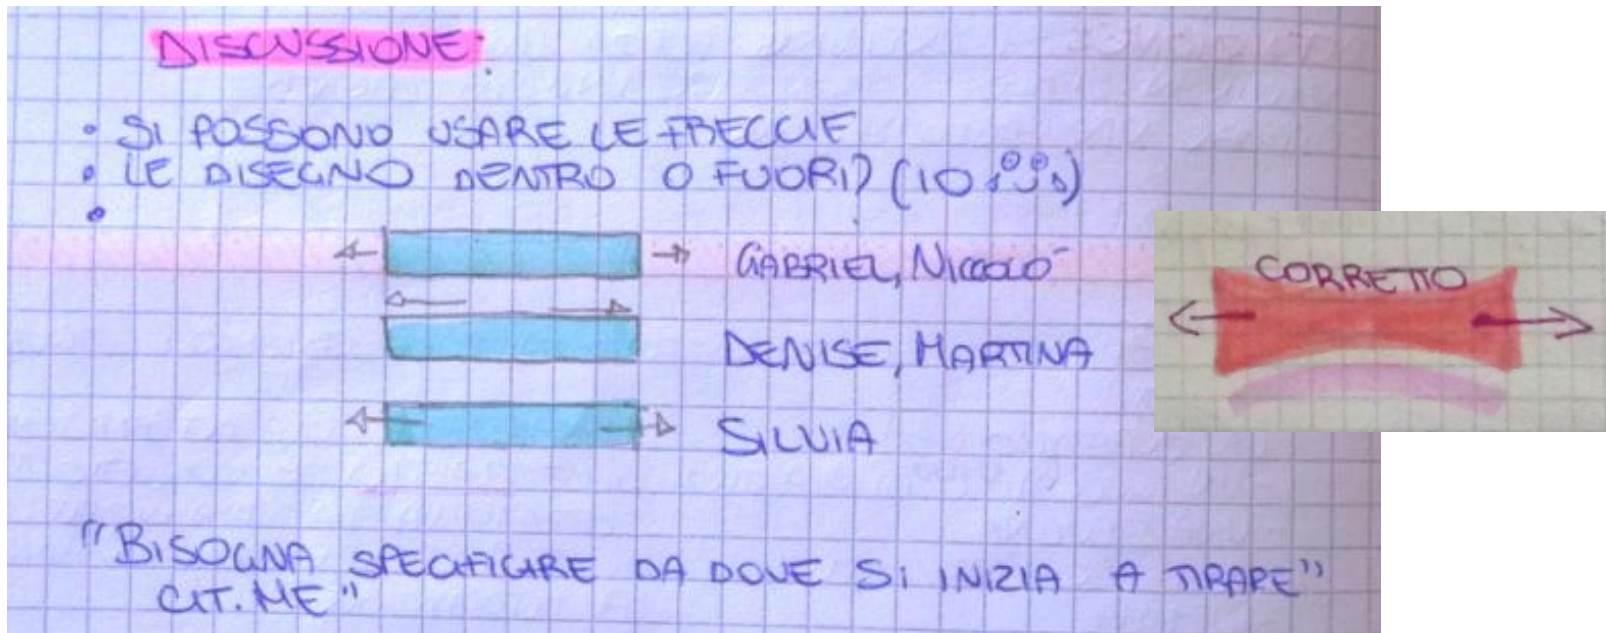 DISCUSSIONE:
• SI POSSONO USARE LE FRECCIE
• LE DISEGNO DENTRO O FUORI? (10
•
GABRIEL, NICCOLÒ
DENISE, MARTINA
SILVIA
CORRETTO
"BISOGNA SPECIFICARE DA DOVE SI INIZIA A TIRARE"
CIT. ME"